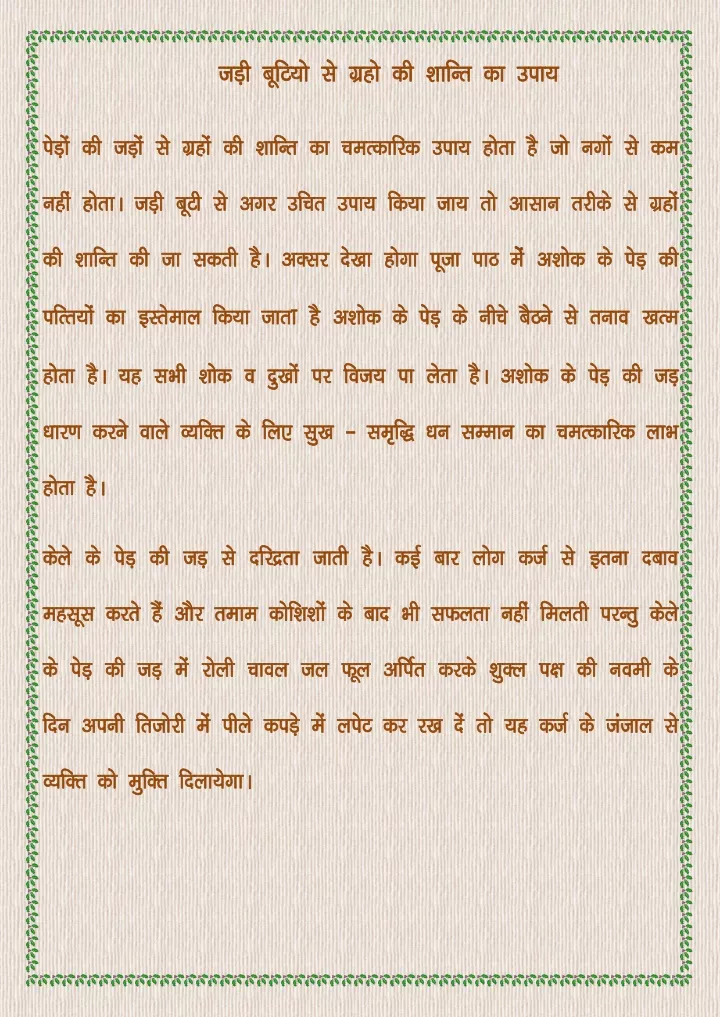 जड़ी बूटियो से ग्रहो की शान्ति का उपाय
पेड़ों की जड़ों से ग्रहों की शान्ति का चमत्कारिक उपाय होता है जो नगों से कम
नहीं होता। जड़ी बूटी से अगर उचित उपाय किया जाय तो आसान तरीके से ग्रहों
की शान्ति की जा सकती है। अक्सर देखा होगा पूजा पाठ में अशोक के पेड़ की
पत्तियों का इस्तेमाल किया जाता है अशोक के पेड़ के नीचे बैठने से तनाव खत्म
होता है। यह सभी शोक व दुखों पर विजय पा लेता है। अशोक के पेड़ की जड़
धारण करने वाले व्यक्ति के लिए सुख – समृद्धि धन सम्मान का चमत्कारिक लाभ
होता है।
केले के पेड़ की जड़ से दरिद्रता जाती है। कई बार लोग कर्ज से इतना दबाव
महसूस करते हैं और तमाम कोशिशों के बाद भी सफलता नहीं मिलती परन्तु केले
के पेड़ की जड़ में रोली चावल जल फूल अर्पित करके शुक्ल पक्ष की नवमी के
दिन अपनी तिजोरी में पीले कपड़े में लपेट कर रख दें तो यह कर्ज के जंजाल से
व्यक्ति को मुक्ति दिलायेगा।